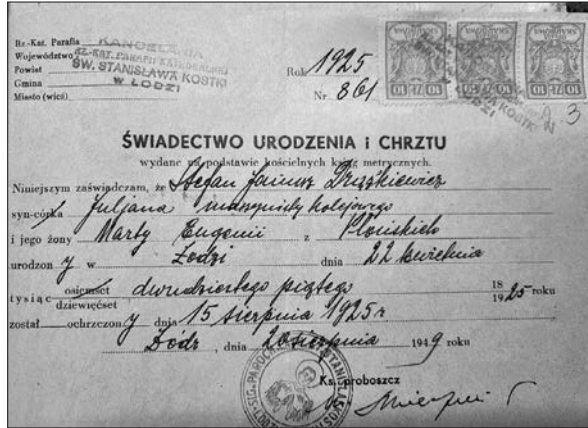 Rz.-Kat. Parafia
Województwo
Powiat
Gmina
Miasto (wieś)
KANCELARIA
RZ.-KAT. PARAFII KATEDRALNEJ
ŚW. STANISŁAWA KOSTKI
W ŁODZI
Rok 1925
Nr 861
10 zł 10
10 zł 10
10 zł 10
3
ŚWIADECTWO URODZENIA i CHRZTU
wydane na podstawie kościelnych ksiąg metrycznych.
Niniejszym zaświadczam, że Stefan Janusz
syn-córka Juljana maszynisty kolejowego
i jego żony Marty Eugenii z Płońskich
urodzony w Łodzi dnia 22 kwietnia
tysiąc osiemset dziewięćset dwudziestego piątego 18 1925 roku
został ochrzczony dnia 15 sierpnia 1925 r
Łódź, dnia 20 sierpnia 1949 roku
Ks. proboszcz